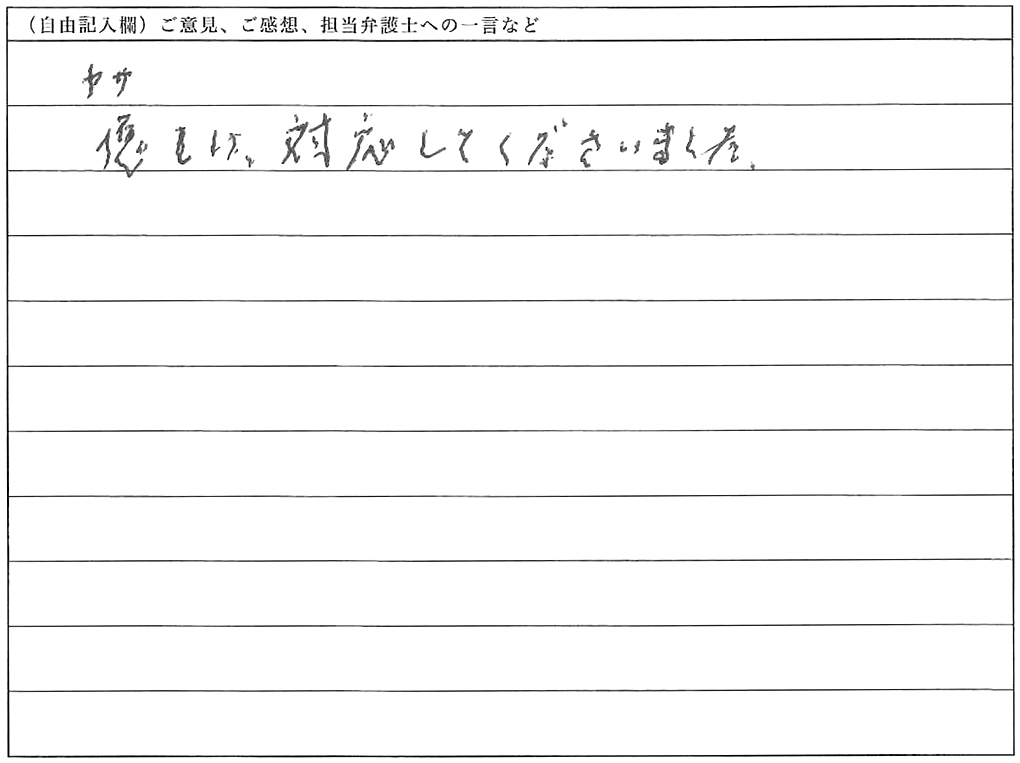 （自由記入欄）ご意見、ご感想、担当弁護士への一言など
ヤサ
優しく、対応してくださいました。